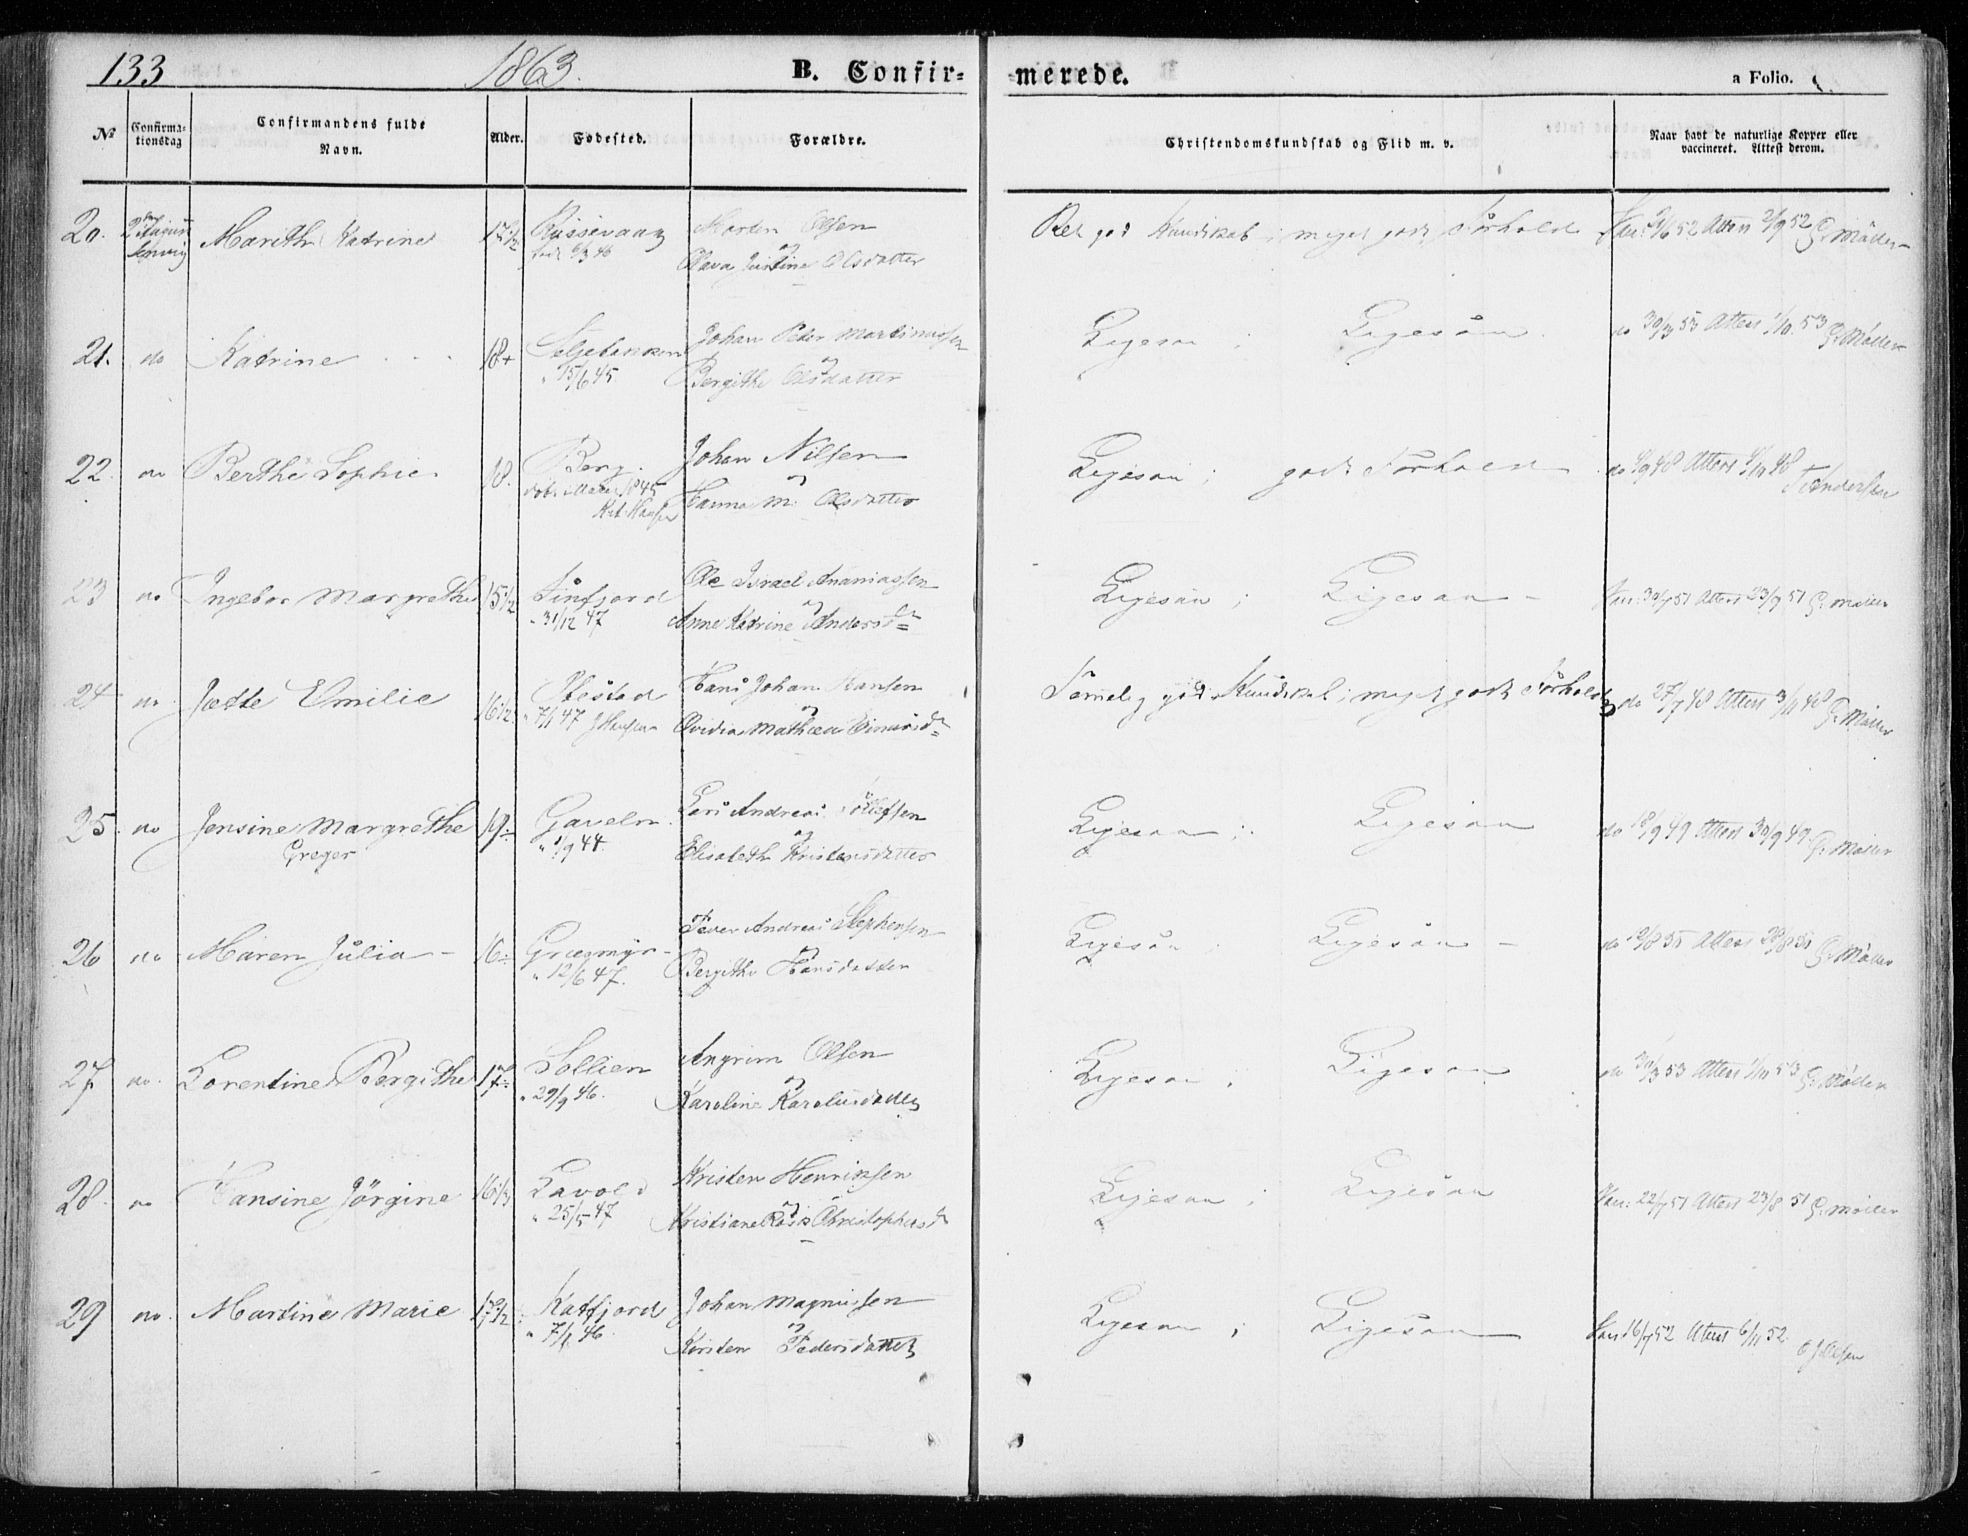 133 1863. B. Confir= merede. a Folio.
No Confirma-tionsdag Confirmandens fulde Navn. Alder. Fødested. Forældre. Christendomskundskab og Flid m. v. Naar havt de naturlige Kopper eller vaccineret. Attest derom.
20. Marith Katrine 17 1/2 Russevaag Morten Olsen Ret god Kundskab; meget godt Forhold Attest 2/9 52 G. Møller
født 6/3 46 og Olava Justine Olsdatter
21. do Katrine 18 Johan Peder Martinussen Ligesaa; Ligesaa do 30/3 53 Attest 1/10 53 G. Møller
" 15/6 45. og Bergithe Olsdatter
22. do Berthe Sophie 18. Berg. Johan Nilsen Ligesaa; godt Forhold do Attest Andersen
1845 og Hanna M. Olsdatter
23 do Ingebor Margrethe 15 1/2 Finfjord Ole Israel Ananiassen Ligesaa; Ligesaa Vac: 30/7 51 Attest 23/9 51 G. Møller
" 31/12 47 og Anne Katrine Andersd=
24 do Jette Emilie 16 1/2 Hans Johan Hansen Temmelig god Kundskab; meget godt Forhold do 27/7 48 Attest 3/11 48 G. Møller
" 7/1 47 og Ovidia Mathea
25. do Jensine Margrethe 19. Gaveln Lars Andreas Ligesaa; Ligesaa do 18/9 49 Attest 30/9 49. G. Møller
Greger " 1/9 44. og Elisabeth Kristensdatter
26 do Maren Julia 16 Græsmyr Peder Andreas Stephensen Ligesaa; Ligesaa do Attest G. Møller
" 12/6 47. og Bergithe Hansdatter
27 do. Lorentine Bergithe 17 Sollien Angrim Olsen Ligesaa; Ligesaa do 30/3 53 Attest 1/10 53 G. Møller
" 29/9 46. og Karoline Karolusdatter
28. do Hansine Jørgine 16 1/3 Lavold Kristen Henriksen Ligesaa; Ligesaa Vac: 22/7 51 Attest 23/8 51 G. Møller
" 25/5 47 og Kristiane Rasis Christophersd
29 do. Martine Marie 17 1/2 Katfjord Johan Magnussen Ligesaa; Ligesaa Vac 16/7 52 Attest 6/11 52
" 7/1 46. og Kirsten Pedersdatter